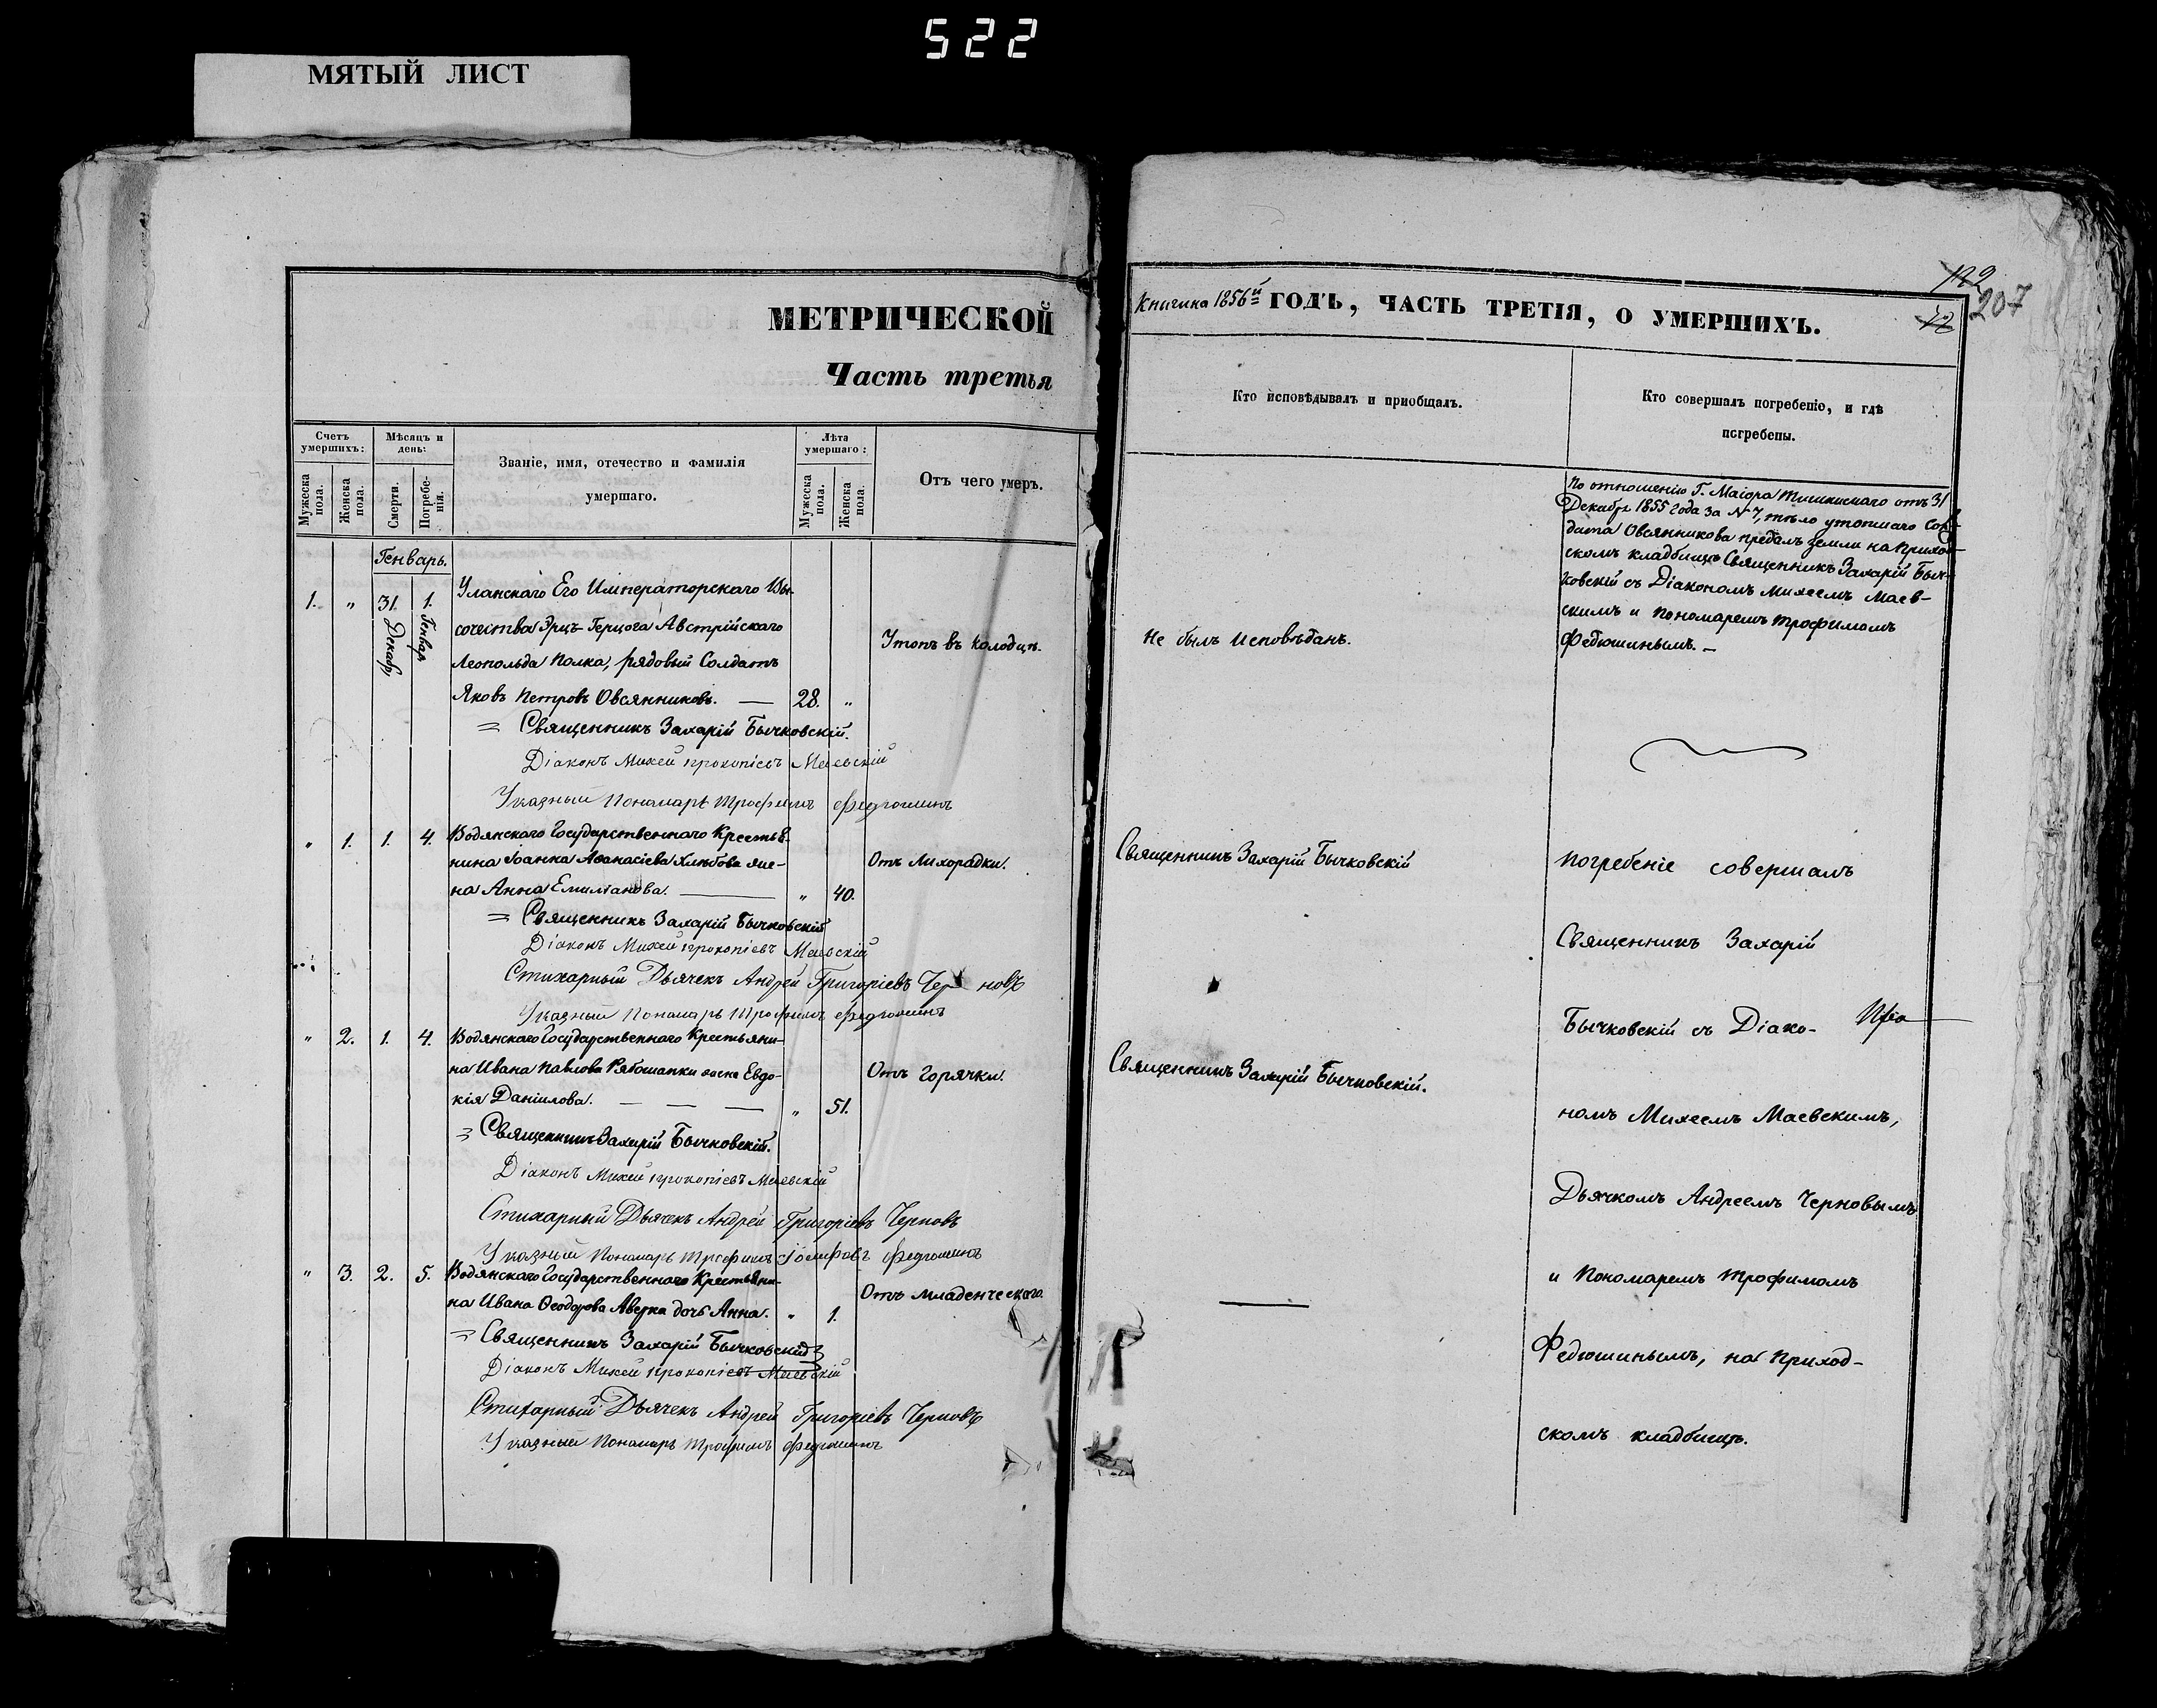 522
МЯТЫЙ ЛИСТ
МЕТРИЧЕСКОЙ
Часть третья
Счетъ умершихъ:
Мужеска пола.
Женска пола.
Мѣсяцъ и день:
Смерти.
Погребенія.
Званіе, имя, отечество и фамилія
умершаго.
Лѣта умершаго:
Мужеска пола.
Женска пола.
Отъ чего умеръ.
Генварь.
1. " 31. 1. Уланскаго Его Императорскаго Вы-
Декабр. Генвар
сочества Эрцъ-Герцога Австрійскаго
Леопольда Полка, рядовый Солдатъ
Яковъ Петровъ Овсянниковъ. — 28. "
Утопъ въ Колодцѣ.
= Священникъ Захарій Бычковскій.
Діаконъ Михей Прокопіевъ Маевскій
Указный Пономарь Трофимъ Федюшинъ
" 1. 1. 4. Водянскаго Государственнаго Крестья-
нина Іоанна Аѳанасіева Хлѣбова же-
на Анна Емиліанова. — " 40.
Отъ Лихорадки.
= Священникъ Захарій Бычковскій
Діаконъ Михей Прокопіевъ Маевскій
Стихарный Дьячекъ Андрей Григоріевъ Черновъ
Указный Пономарь Трофимъ Федюшинъ
" 2. 1. 4. Водянскаго Государственнаго Крестьяни-
на Ивана Павлова Рябошапки жена Евдо-
кія Даніилова. — — — " 51.
Отъ Горячки.
= Священникъ Захарій Бычковскій.
Діаконъ Михей Прокопіевъ Маевскій
Стихарный Дьячекъ Андрей Григоріевъ Черновъ
Указный Пономарь Трофимъ Іосифовъ Федюшинъ
" 3. 2. 5. Водянскаго Государственнаго Крестьяни-
на Ивана Ѳеодорова дочь Анна. " 1.
Отъ Младенческаго.
= Священникъ Захарій Бычковскій
Діаконъ Михей Прокопіевъ Маевскій
Стихарный Дьячекъ Андрей Григоріевъ Черновъ
Указный Пономарь Трофимъ Федюшинъ
Книжика 1856й ГОДЪ, ЧАСТЬ ТРЕТІЯ, О УМЕРШИХЪ.
122
207
Кто исповѣдывалъ и пріобщалъ.
Кто совершалъ погребеніе, и гдѣ
погребены.
По отношенію Г. Маіора отъ 31
Декабр. 1855 Года за №7, тѣло утопшаго Сол-
дата Овсянникова предалъ земли на Приход-
скомъ кладбищѣ Священникъ Захарій Быч-
ковскій съ Діакономъ Михеемъ Маев-
скимъ и Пономаремъ Трофимомъ
Федюшинымъ. —
Не былъ Исповѣданъ.
Священникъ Захарій Бычковскій
Священникъ Захарій Бычковскій.
Погребеніе совершалъ
Священникъ Захарій
Бычковскій съ Діако-
номъ Михеемъ Маевскимъ,
Дьячкомъ Андреемъ Черновымъ
и Пономаремъ Трофимомъ
Федюшинымъ, на Приход-
скомъ кладбищѣ.